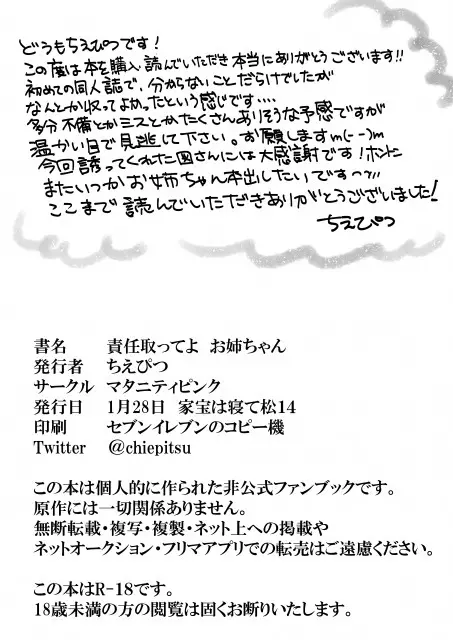 どうもちえぴつです！
この度は本を購入、読んでいただき本当にありがとうございます!!
初めての同人誌で、分からないことだらけでしたが
なんとか収ってよかったという感じです....
多分不備とかミスとかたくさんありそうな予感ですが
温かい目で見逃して下さい。お願しますm(--)m
今回誘ってくれた国さんには大感謝です！ホントに
またいつかお姉ちゃん本出したいですっ
ここまで読んでいただきありがとうございました!
ちえぴつ
書名 責任取ってよ お姉ちゃん
発行者 ちえぴつ
サークル マタニティピンク
発行日 1月28日 家宝は寝て松14
印刷 セブンイレブンのコピー機
Twitter @chiepitsu
この本は個人的に作られた非公式ファンブックです。
原作には一切関係ありません。
無断転載・複写・複製・ネット上への掲載や
ネットオークション・フリマアプリでの転売はご遠慮ください。
この本はR-18です。
18歳未満の方の閲覧は固くお断りいたします。